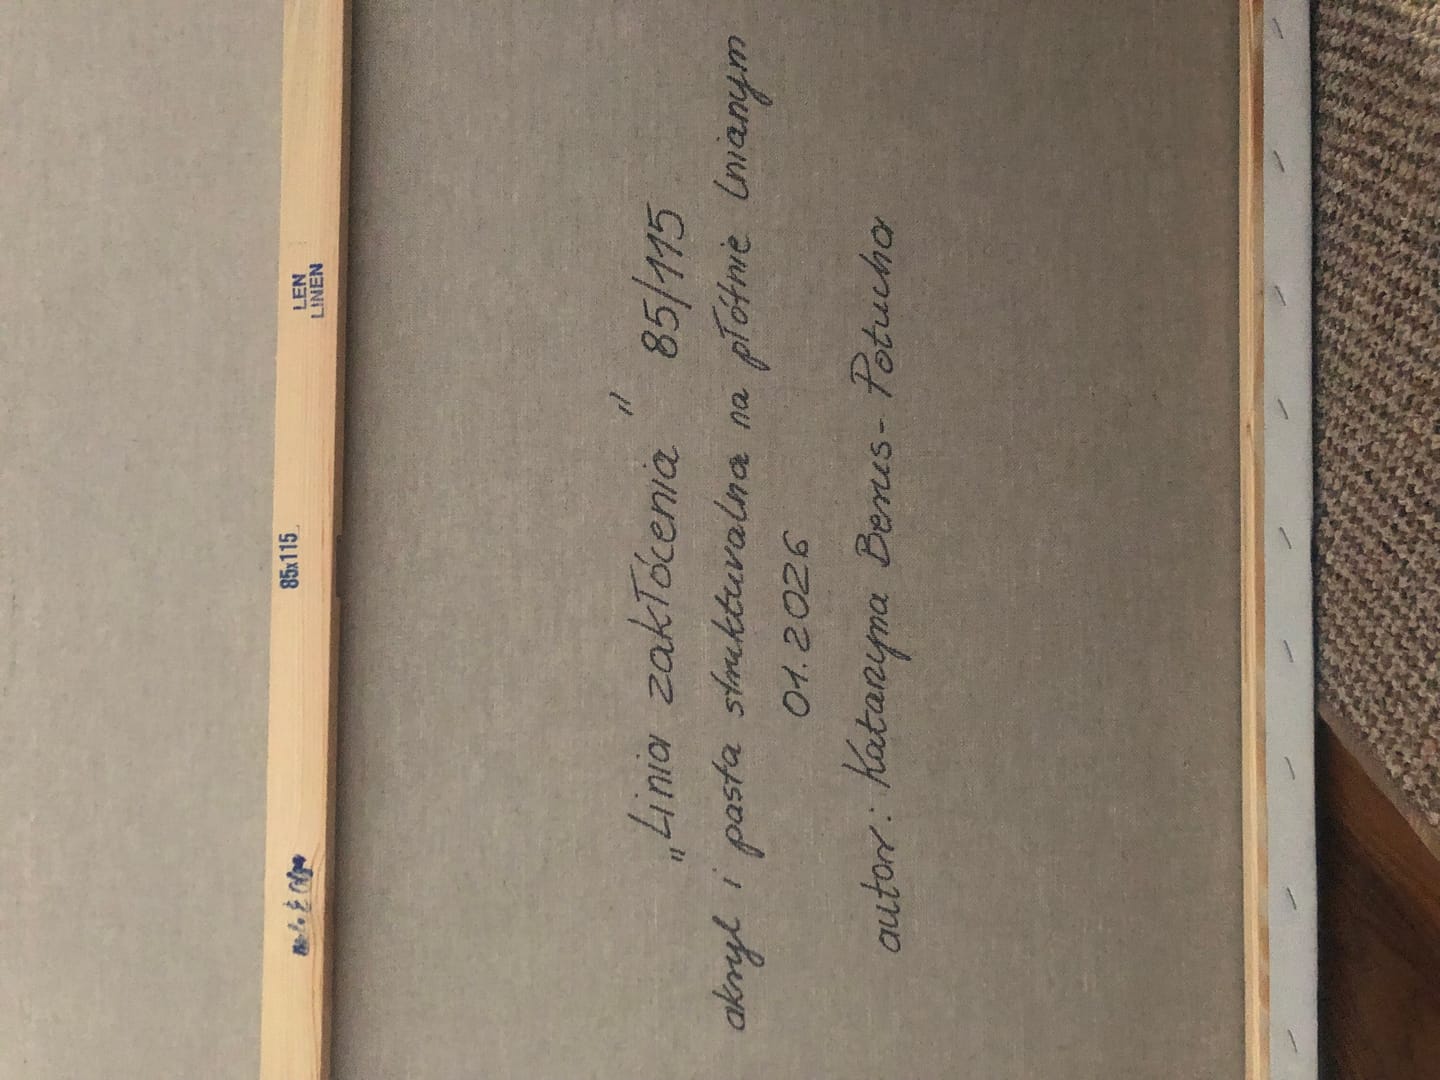 LEN
LINEN
85x115
„Linia zakłócenia” 85/115
akryl i pasta strukturalna na płótnie lnianym
01.2026
autor: Katarzyna Benus-Potucha